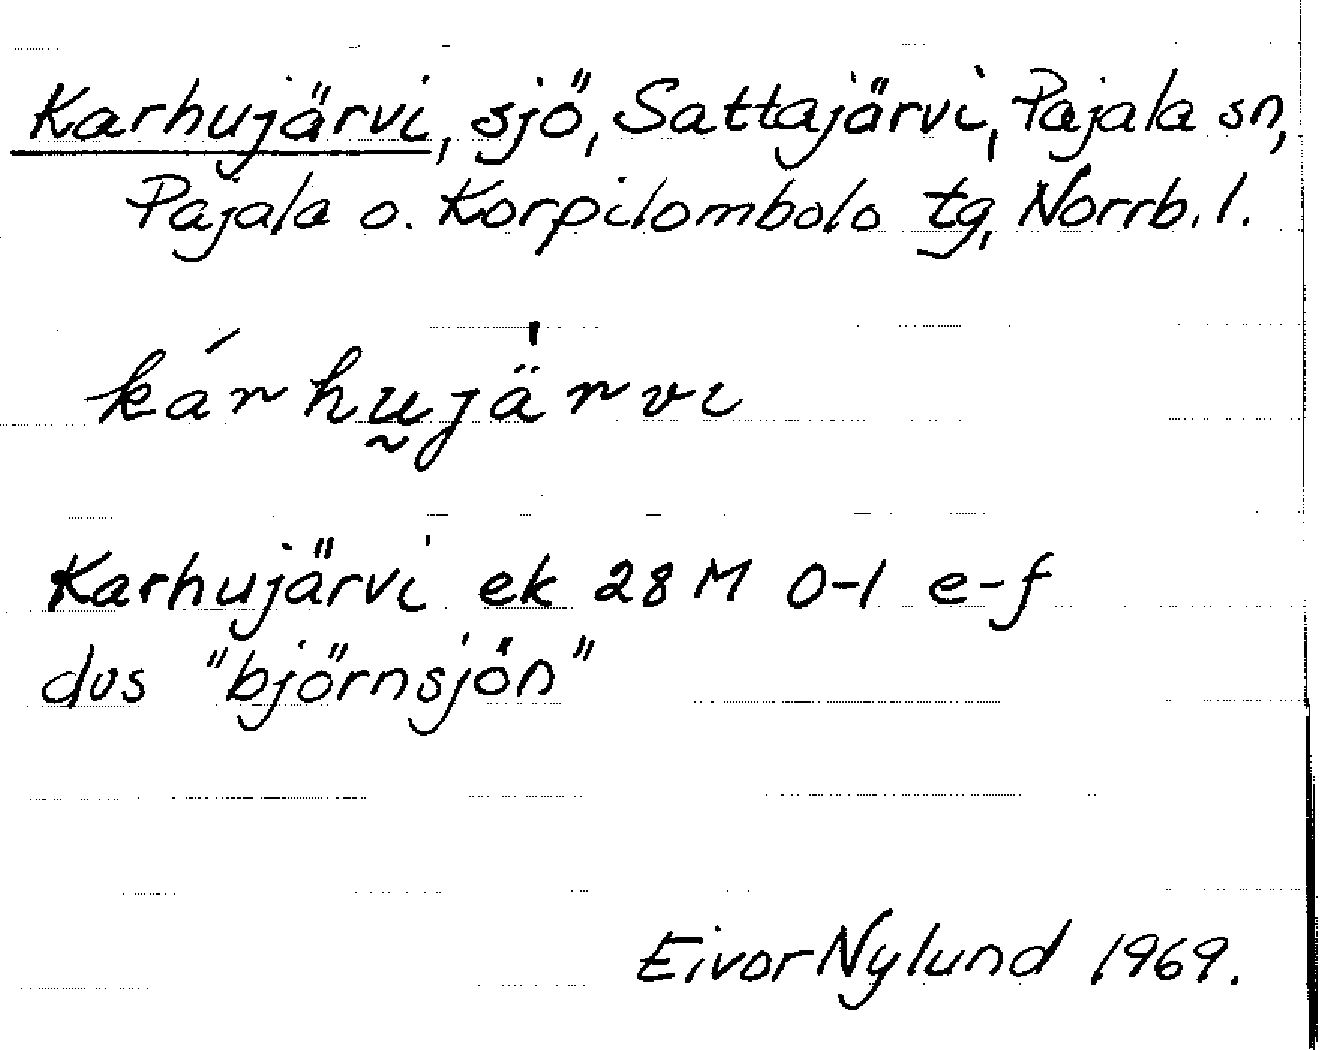 Karhujärvi, sjö, Sattajärvi, Pajala sn,
Pajala o. Korpilombolo tg, Norrb. l.
kárhṵjä̍rvi
Karhujärvi ek 28 M 0-1 e-f
dvs "björnsjön"
Eivor Nylund 1969.